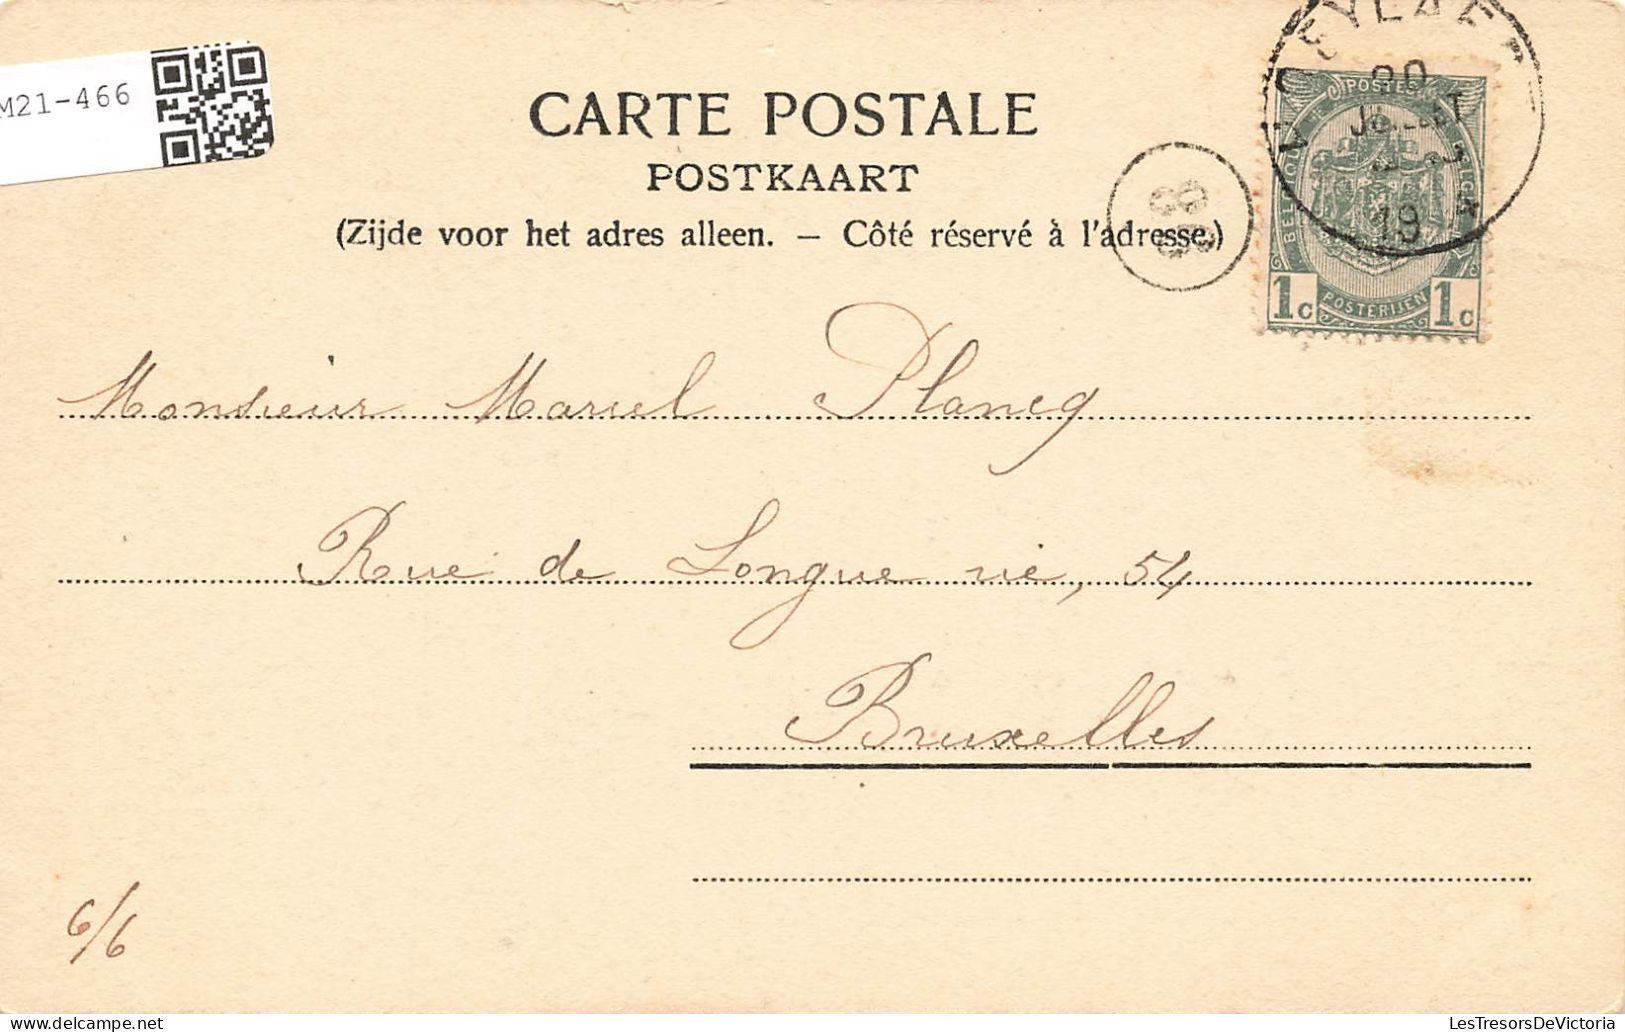 M21-466
CARTE POSTALE
POSTKAART
(Zijde voor het adres alleen. — Côté réservé à l'adresse.)
POSTES
BELGIQUE
POSTERIJEN
1c 1c
JUILLET
19
Monsieur Marcel Plancq
Rue de Longue vie, 54
Bruxelles
6/6
LesTresorsDeVictoria
LesTresorsDeVictoria.com